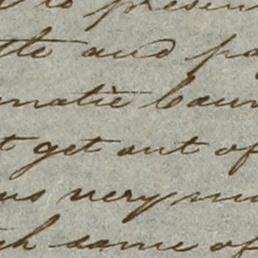 to presen
tle and pa
matic cam
t get out of
ous very mu
ch some of